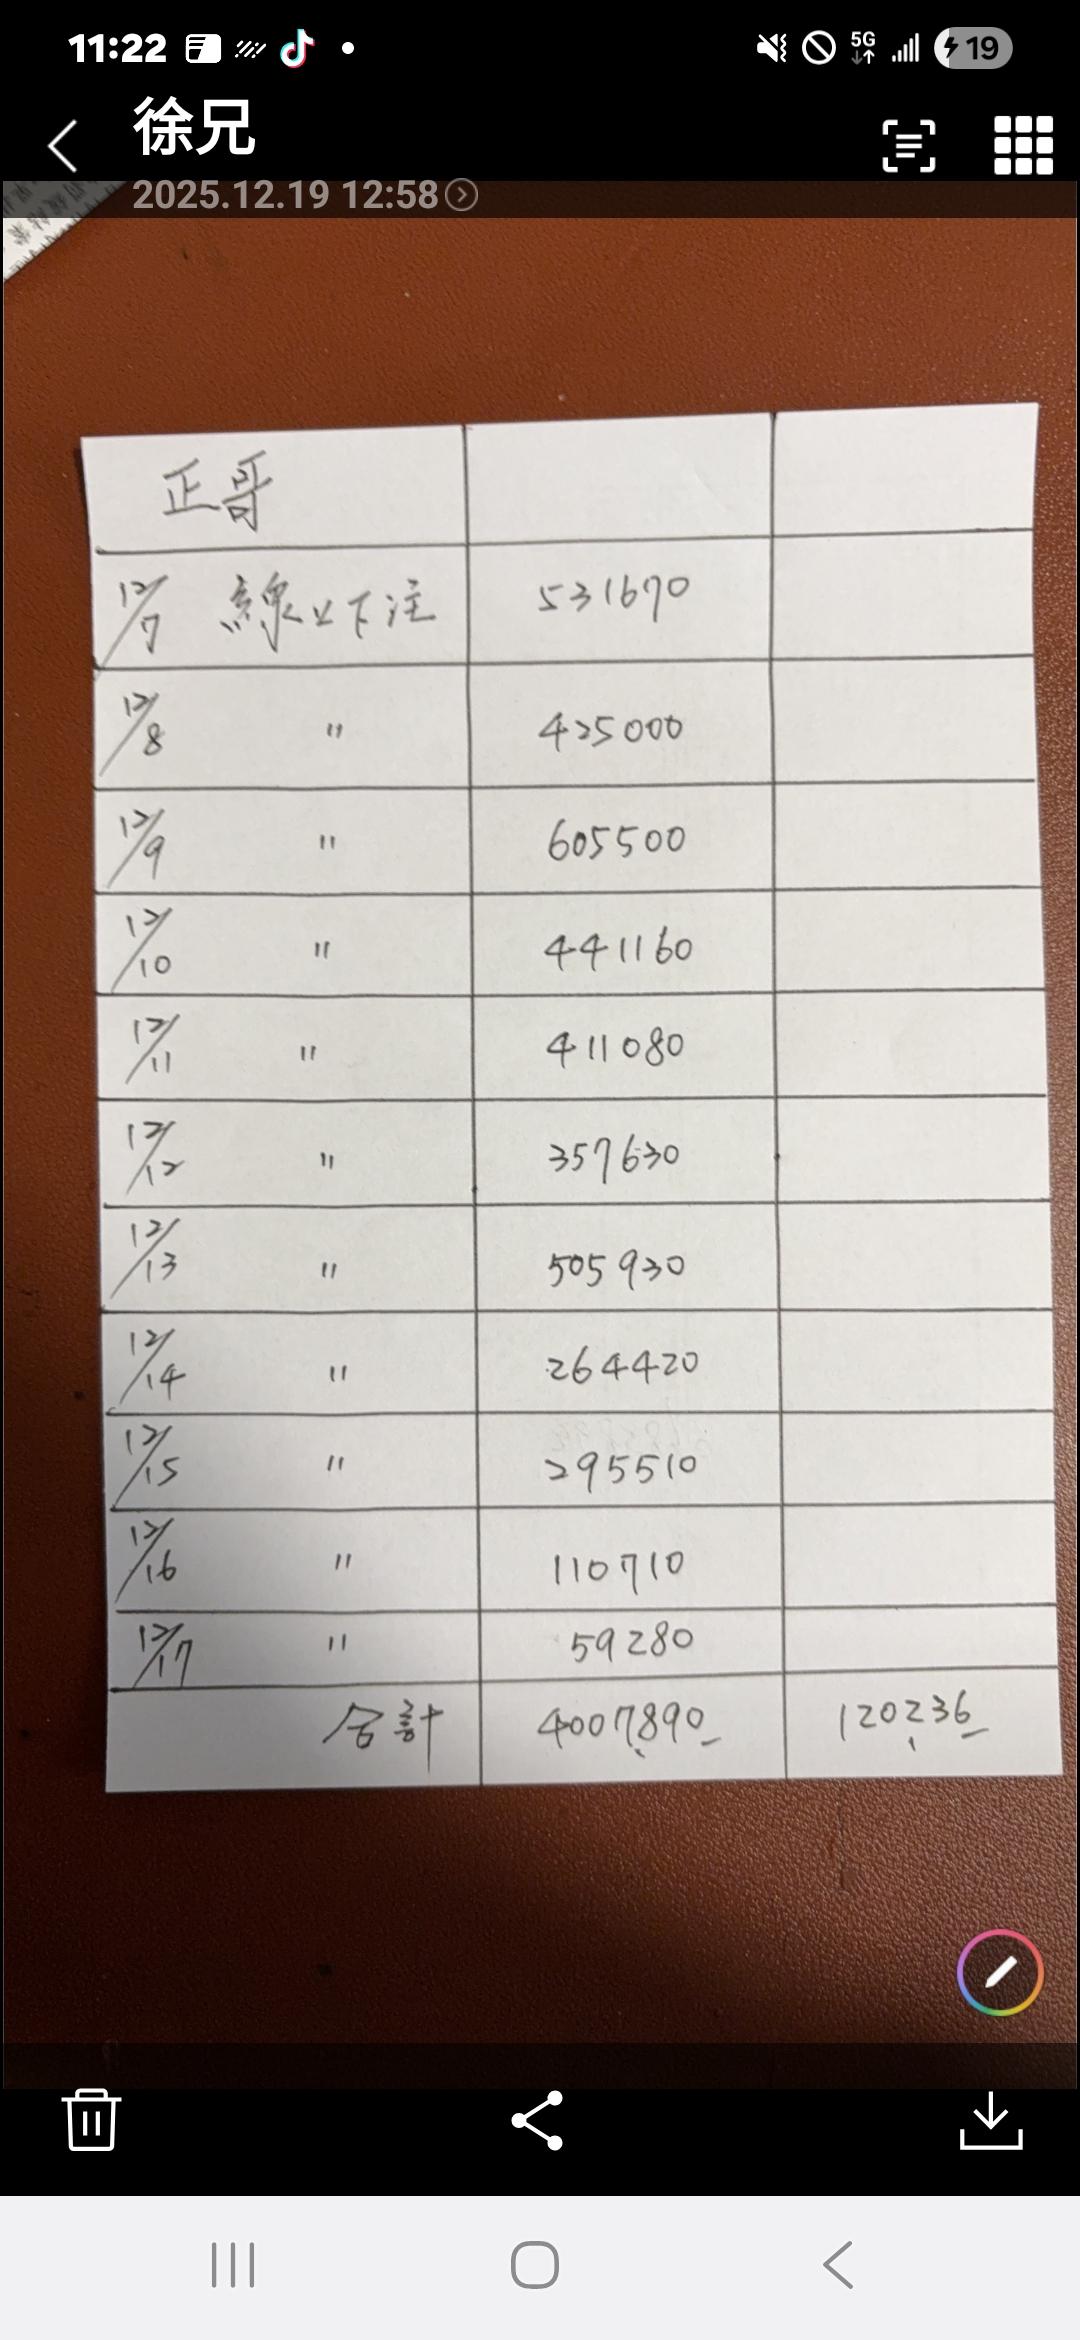 11:22 5G 19
徐兄
2025.12.19 12:58
正哥
12/7 線上下注 531670
12/8 " 425000
12/9 " 605500
12/10 " 441160
12/11 " 411080
12/12 " 357630
12/13 " 505930
12/14 " 264420
12/15 " 295510
12/16 " 110710
12/17 " 59280
合計 4007890 120236